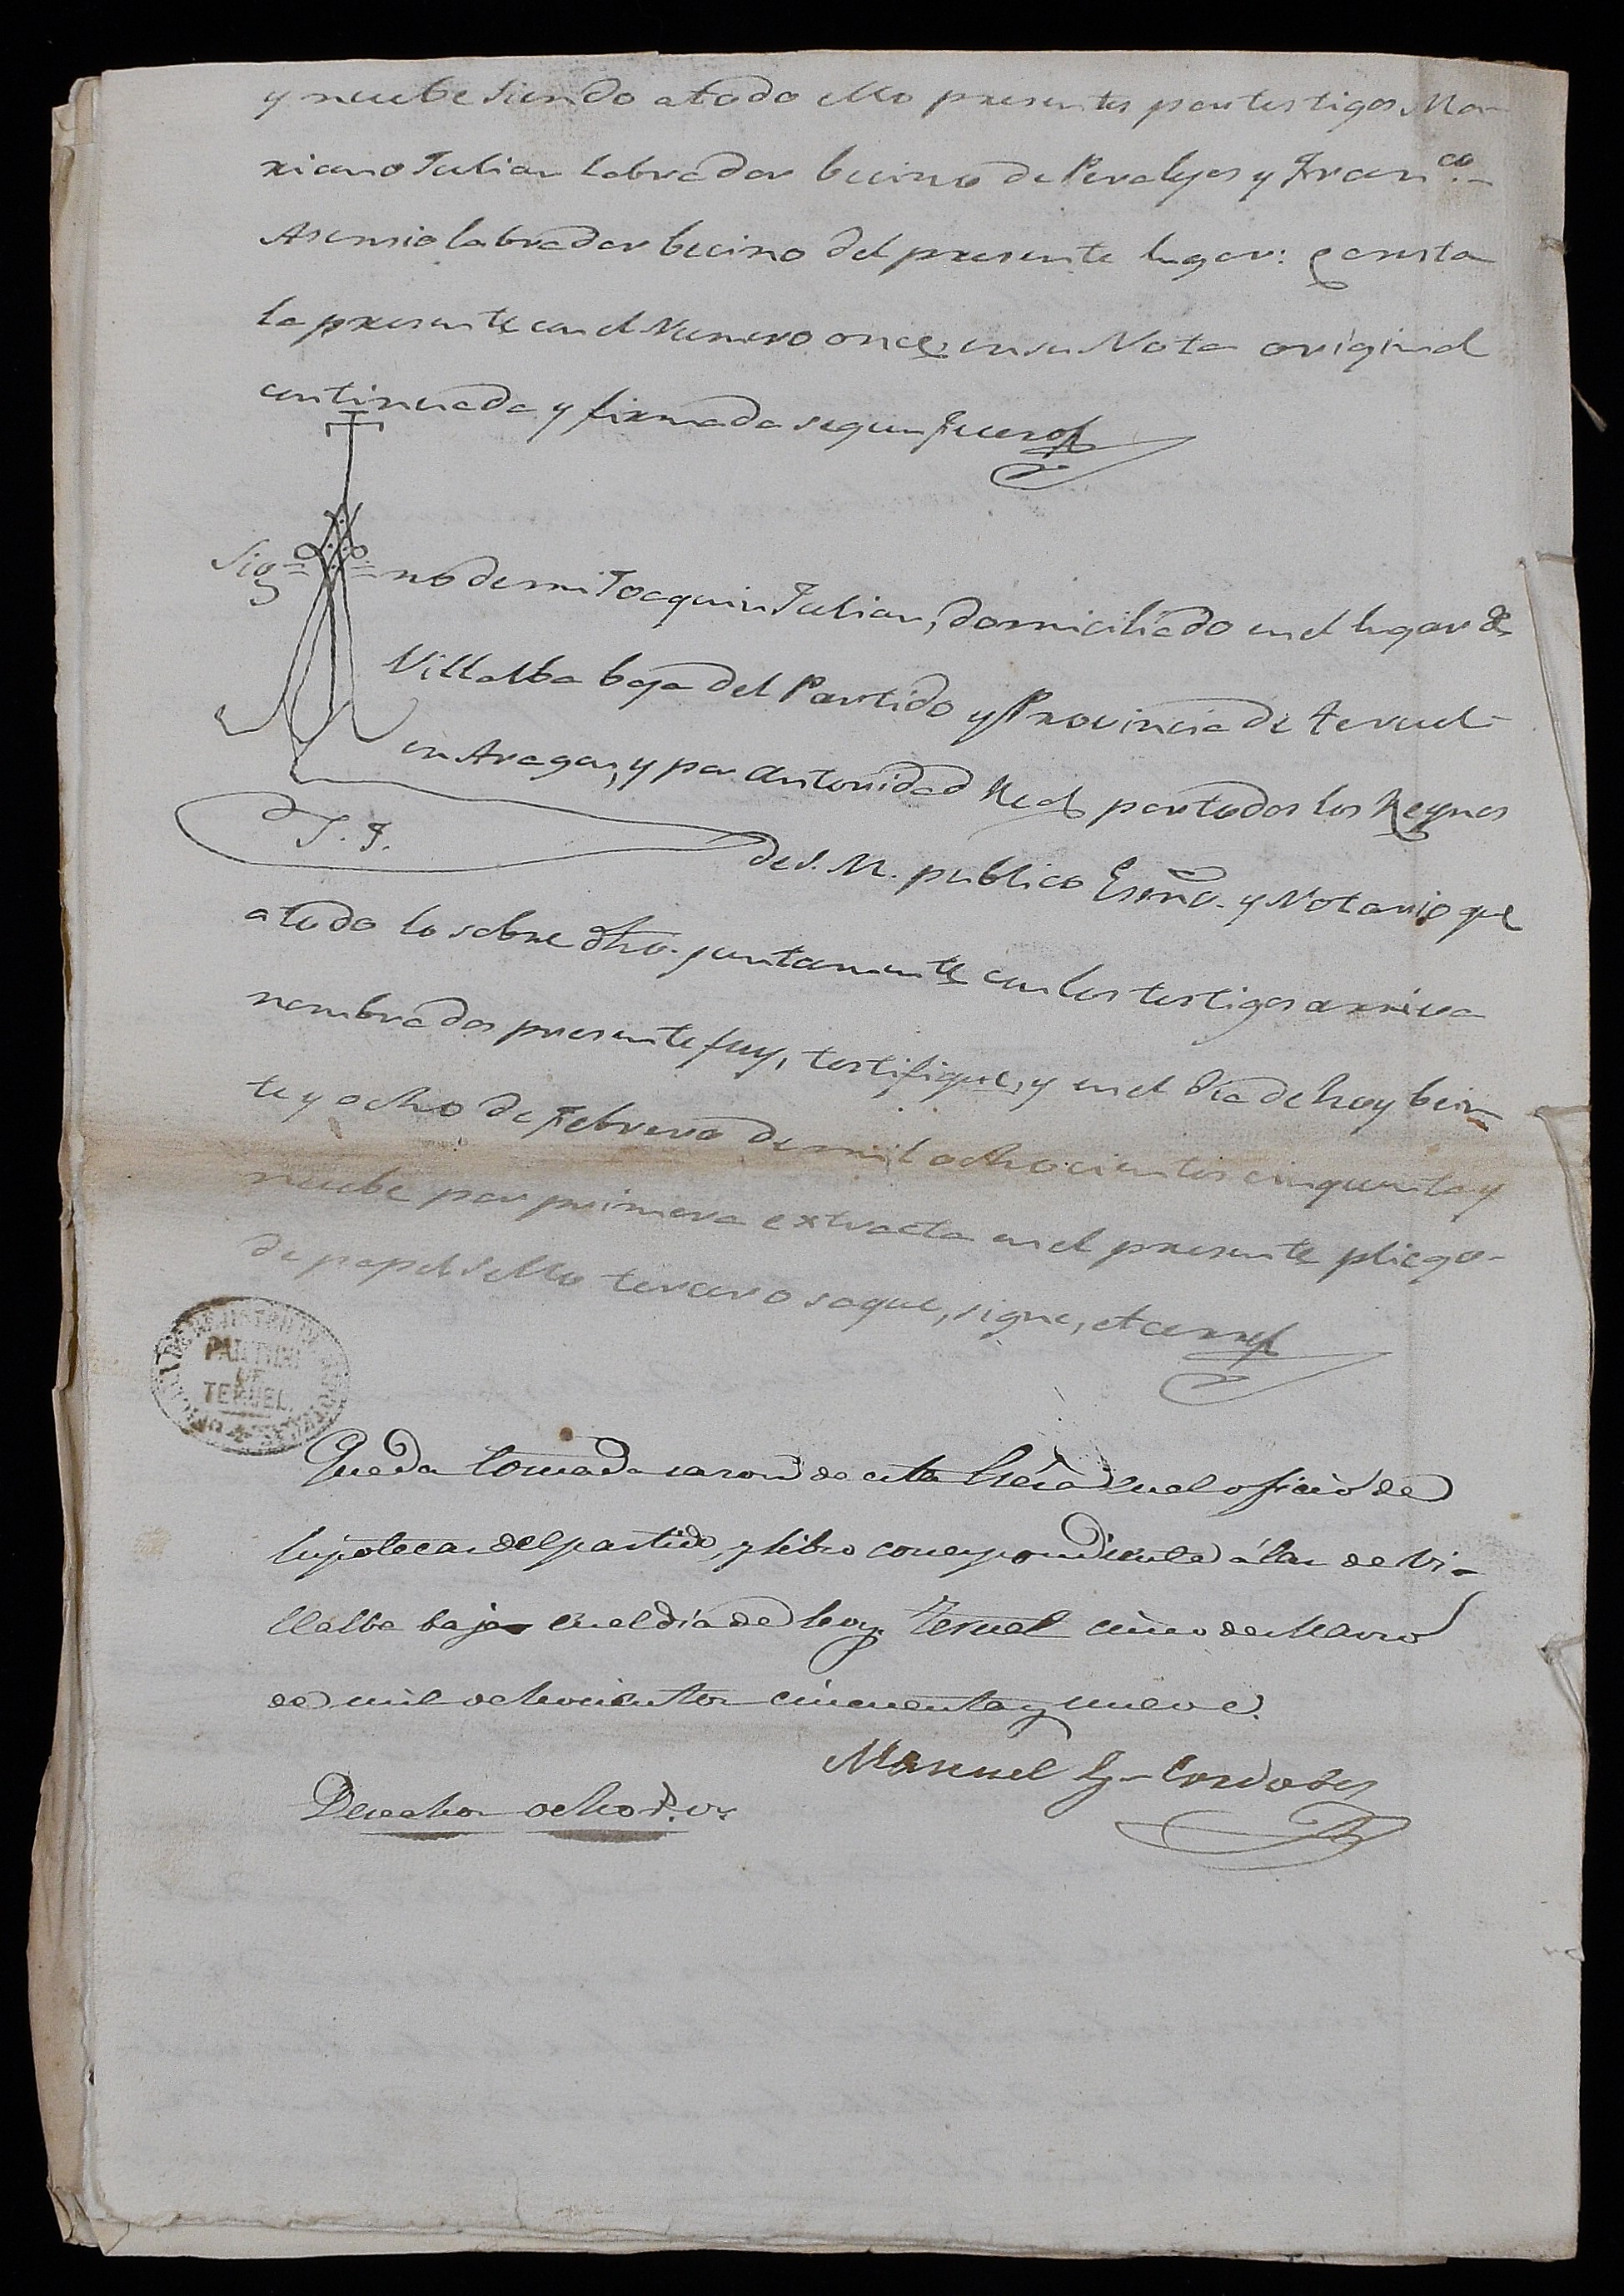 y nuebe siendo atodo ello presentes por testigos Ma-
riano Julian labrador becino de Peralejos y Franco.
Asensio labrador becino del presente lugar: consta
la presente en el Numero once, en su Nota original
continuada y firmada segun Fuero
Sig= =no de mi Joaquin Julian, domiciliado en el lugar de
Villalba baja del Partido y Provincia de Teruel
en Aragon, y por autoridad Real por todos los Reynos
J. J.
de S. M. publico Esno. y Notario que
a todo lo sobre dho. juntamente con los testigos arriva
nombrados presente fuy, testifique, y en el dia de hoy bein-
te y ocho de Febrero de mil ochocientos cinquenta y
nuebe por primera extracta en el presente pliego
de papel sello tercero saque, signe, et cerre
PARTIDO
DE
TERUEL
Queda tomada razon de esta Escra. en el oficio de
hipotecas del partido, y libro correspondiente á las de Vi-
llalba baja en el dia de hoy. Teruel cinco de Marzo
de mil ochocientos cincuenta y nueve.
Manuel Cordobes
Derechos ocho r. vn.